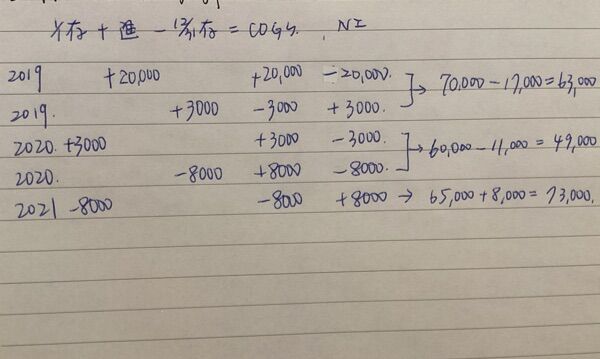 1/1存 + 進 - 12/31存 = COGS. , NI
2019 +20,000 +20,000 -20,000. → 70,000 - 17,000 = 63,000
2019. +3000 -3000 +3000.
2020. +3000 +3000 -3000. → 60,000 - 11,000 = 49,000
2020. -8000 +8000 -8000.
2021 -8000 -8000 +8000 → 65,000 + 8,000 = 73,000.